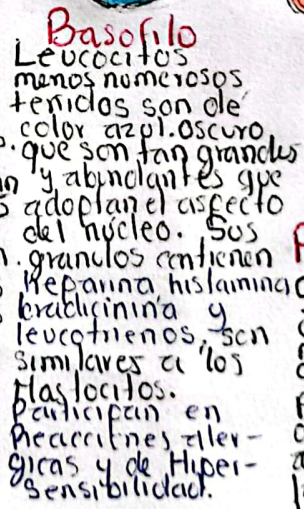 Basofilo
Leucocitos
menos numerosos
teñidos son de
color azul.oscuro
que son tan grandes
y abundantes que
adoptan el aspecto
del núcleo. Sus
granulos contienen
Heparina histamina
bradicinina y
leucotrienos, son
similares a los
Mastocitos.
Participan en
Reacciones aler-
gicas y de Hiper-
sensibilidad.